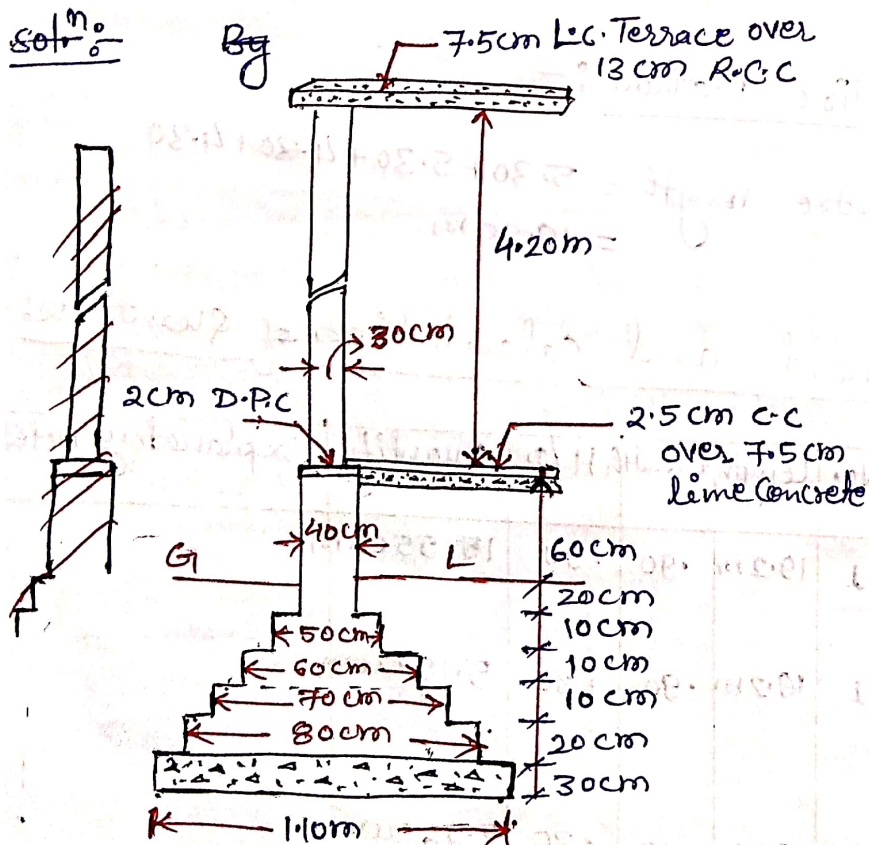 soln:-
By
7.5cm L.C. Terrace over
13 cm R.C.C
4.20m
30cm
2cm D.P.C
2.5cm C.C
over 7.5cm
lime Concrete
40cm
60cm
G
L
20cm
50cm
10cm
60cm
10cm
70cm
10cm
80cm
20cm
30cm
1.10m